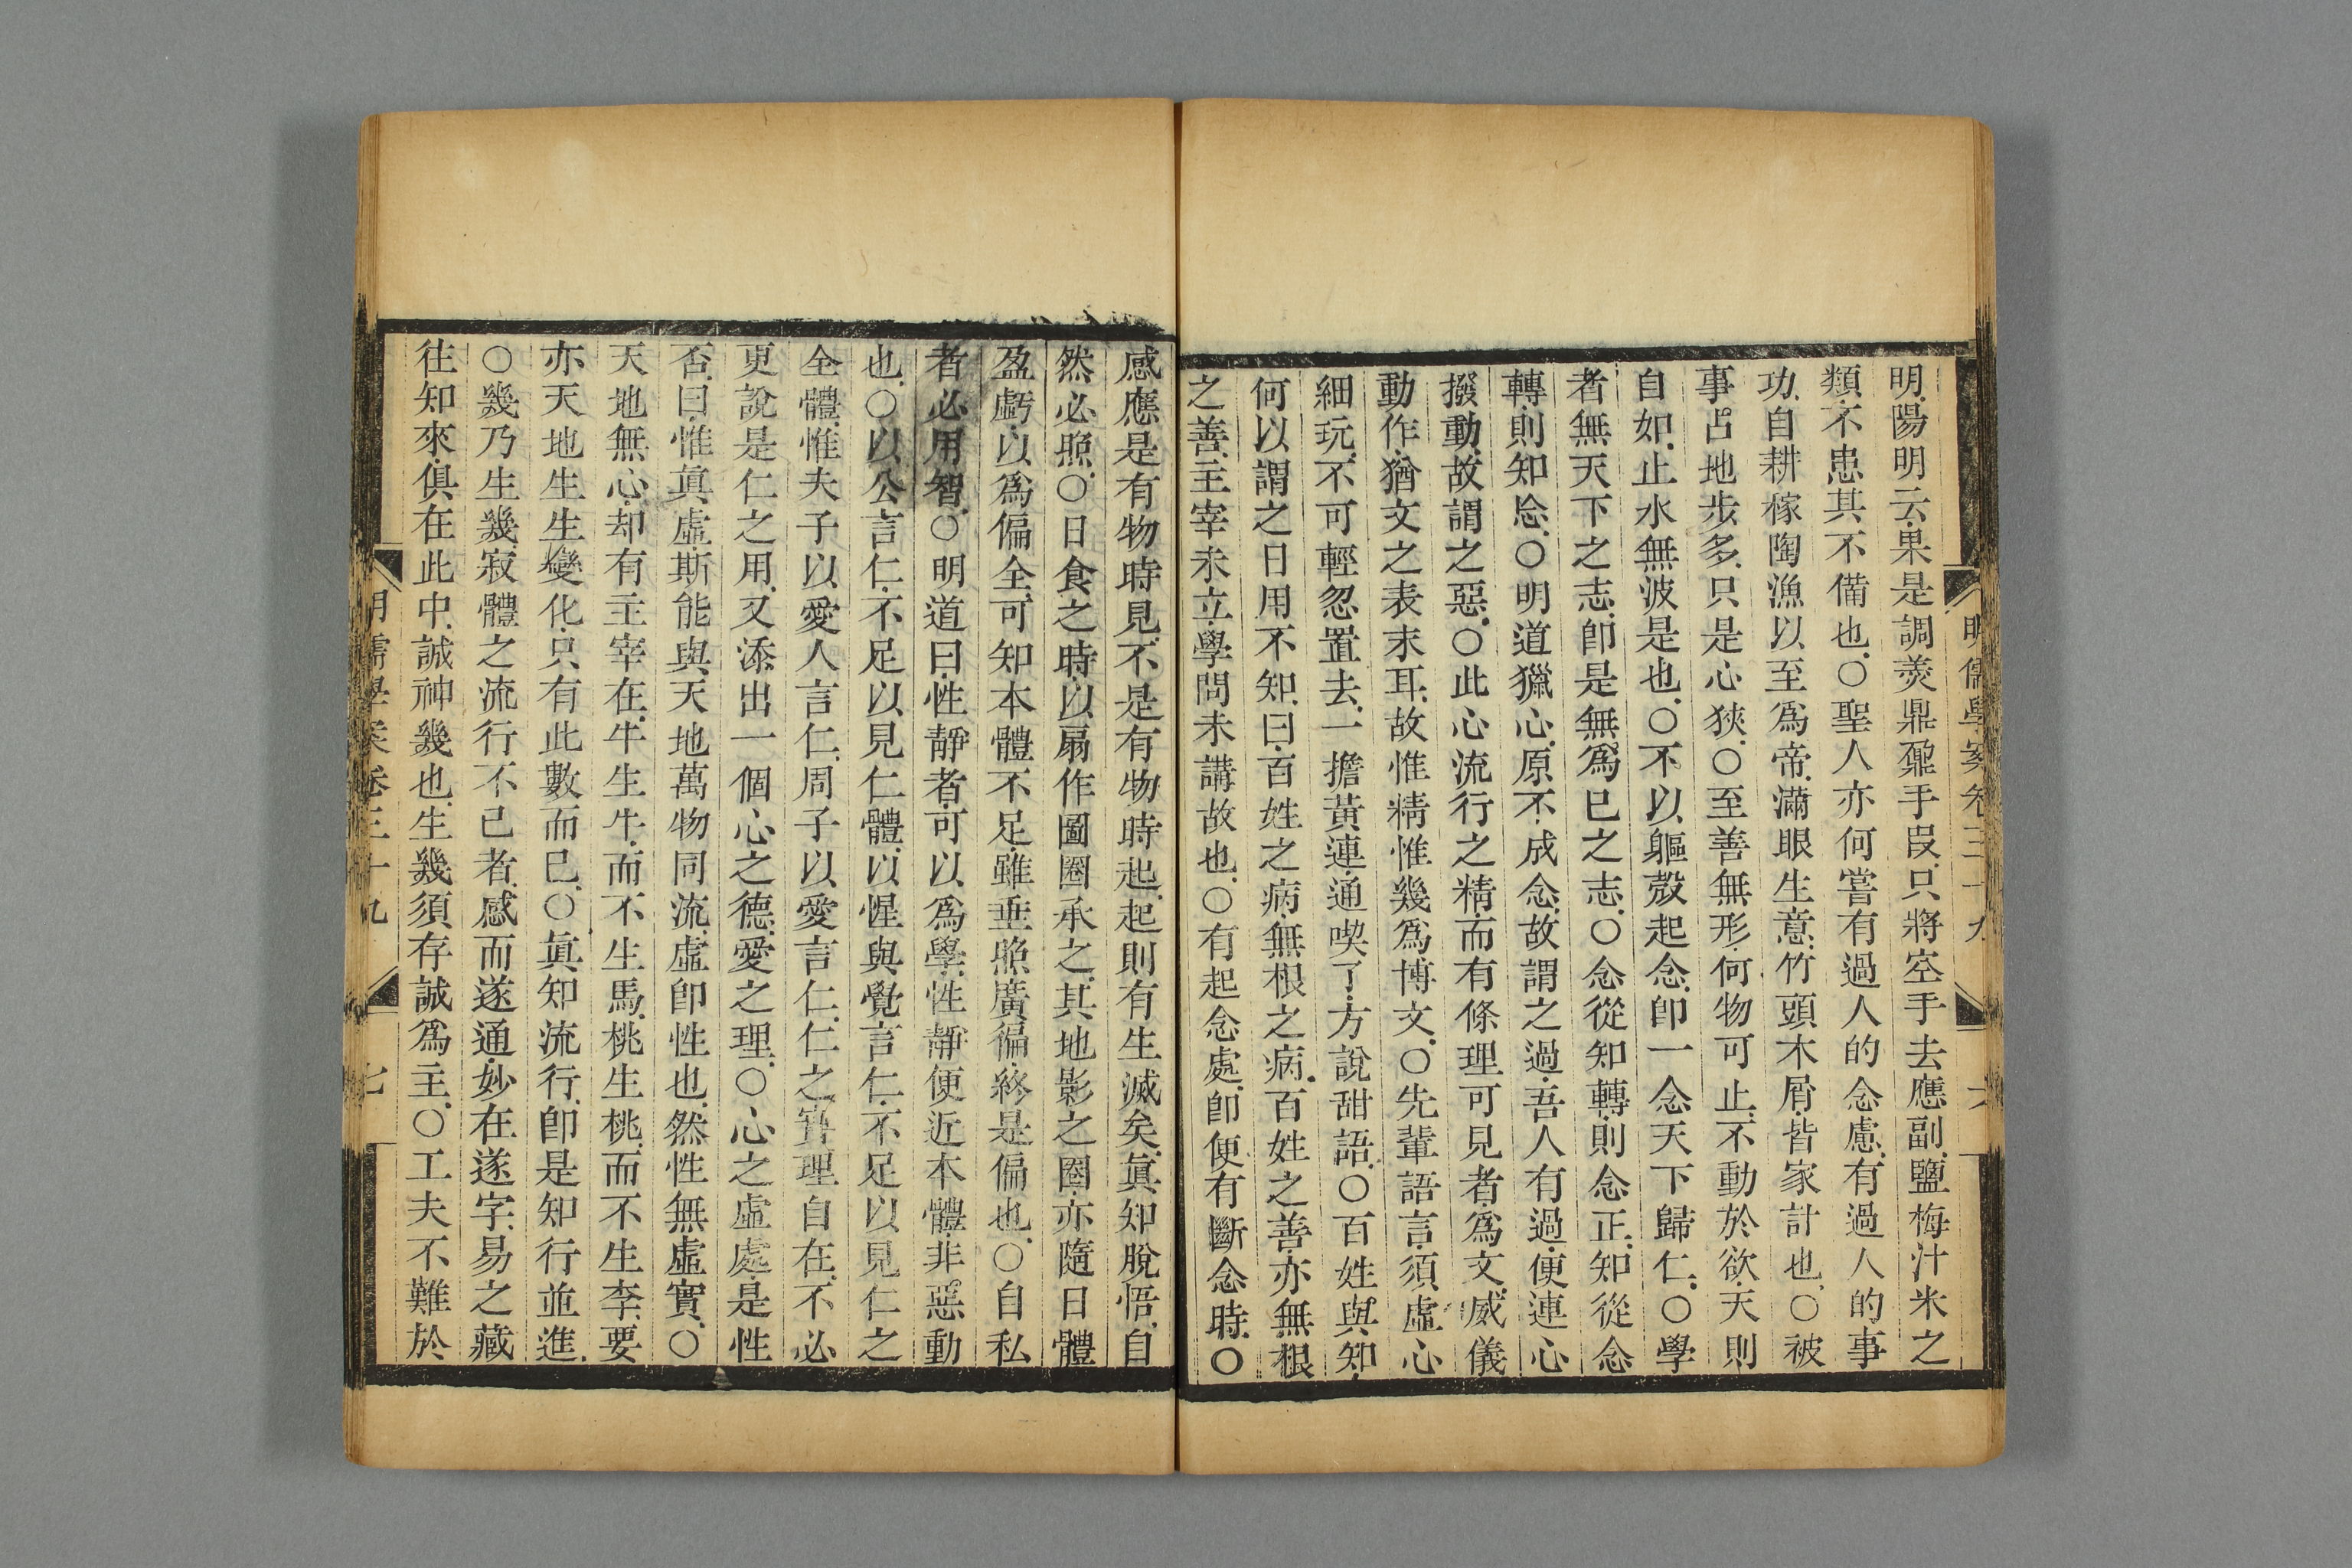 明儒學案卷三十九
六
明陽明云果是調羹鼎鼐手段只將空手去應副鹽梅汁米之
類不患其不備也○聖人亦何嘗有過人的念慮有過人的事
功自耕稼陶漁以至爲帝滿眼生意竹頭木屑皆家計也○被
事占地步多只是心狹○至善無形何物可止不動於欲天則
自如止水無波是也○不以軀殼起念卽一念天下歸仁○學
者無天下之志卽是無爲已之志○念從知轉則念正知從念
轉則知惗○明道獵心原不成念故謂之過吾人有過便連心
撥動故謂之惡○此心流行之精而有條理可見者爲文威儀
動作猶文之表末耳故惟精惟幾爲博文○先輩語言須虛心
細玩不可輕忽置去一擔黃連通喫了方說甜語○百姓與知
何以謂之日用不知曰百姓之病無根之病百姓之善亦無根
之善主宰未立學問未講故也○有起念處卽便有斷念時○
感應是有物時見不是有物時起起則有生滅矣眞知脫悟自
然必照○日食之時以扇作圖圈承之其地影之圈亦隨日體
盈虧以爲偏全可知本體不足雖垂照廣徧終是偏也○自私
者必用智○明道曰性靜者可以爲學性靜便近本體非惡動
也○以公言仁不足以見仁體以惺與覺言仁不足以見仁之
全體惟夫子以愛人言仁周子以愛言仁仁之實理自在不必
更說是仁之用又添出一個心之德愛之理○心之虛處是性
否曰惟眞虛斯能與天地萬物同流虛卽性也然性無虛實○
天地無心却有主宰在牛生牛而不生馬桃生桃而不生李要
亦天地生生變化只有此數而已○眞知流行卽是知行並進
○幾乃生幾寂體之流行不已者感而遂通妙在遂字易之藏
往知來俱在此中誠神幾也生幾須存誠爲主○工夫不難於
明儒學案卷三十九
七